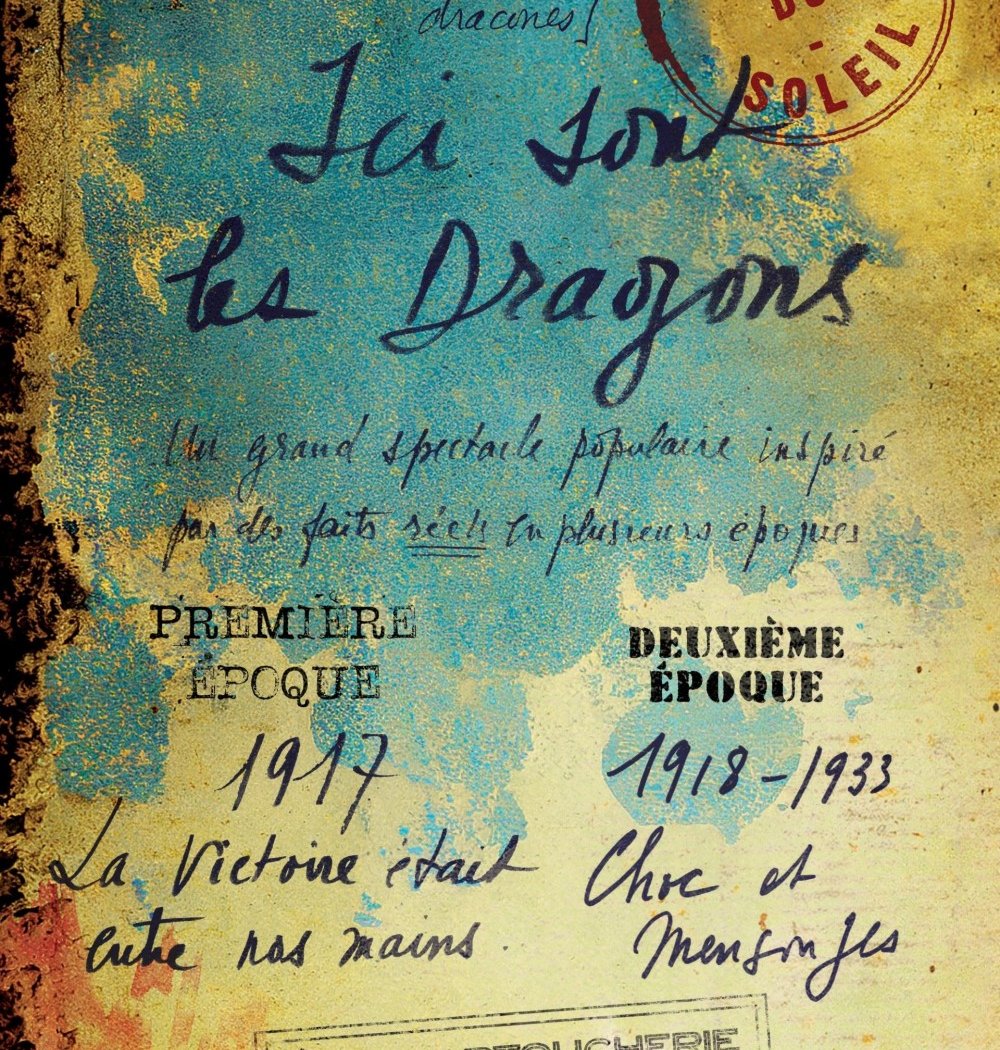 dracones]
DU
-
SOLEIL
Ici sont
les Dragons
Un grand spectacle populaire inspiré
par des faits réels en plusieurs époques
PREMIÈRE
ÉPOQUE
1917
La Victoire était
entre nos mains.
DEUXIÈME
ÉPOQUE
1918-1933
Choc et
Mensonges
CARTOUCHERIE